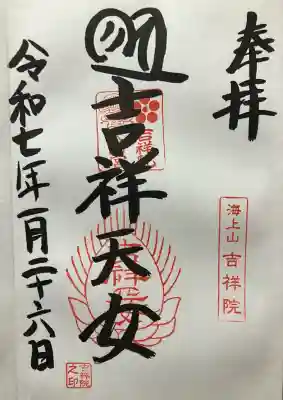 奉拝
海上山 吉祥院
吉祥天女
令和七年一月二十六日
吉祥院之印